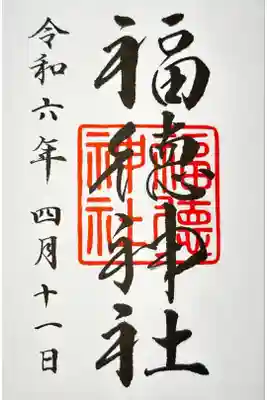 福徳神社
福德
神社
令和六年 四月十一日